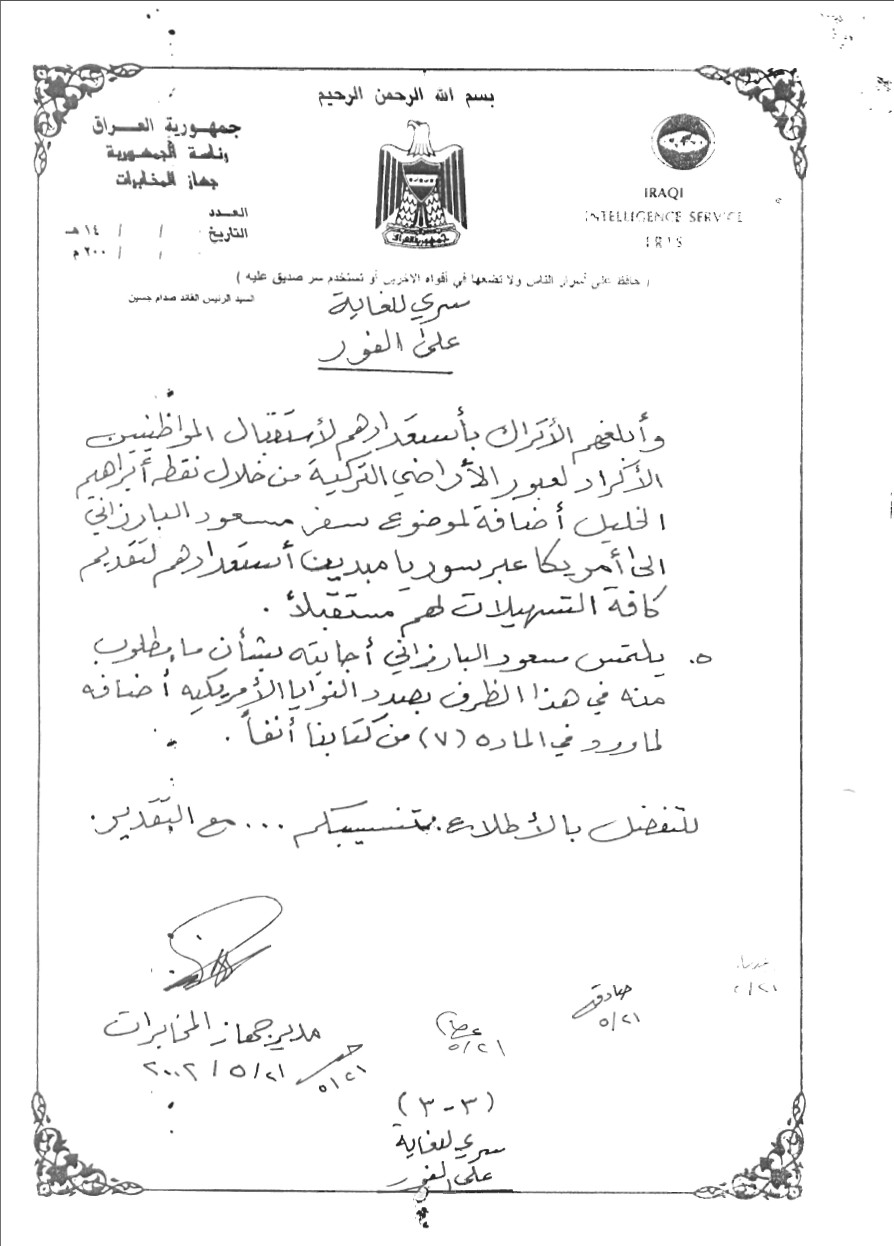 بسم الله الرحمن الرحيم
جمهورية العراق
رئاسة الجمهورية
جهاز المخابرات
العدد
التاريخ / / ١٤ هـ
/ / ٢٠٠ م
جمهورية العراق
IRAQI
INTELLIGENCE SERVICE
IRIS
( حافظ على أسرار الناس ولا تضعها في أفواه الاخرين أو تستخدم سر صديق عليه )
السيد الرئيس القائد صدام حسين
سري للغاية
على الفور
وأبلغهم الأتراك بأستعدادهم لأستقبال المواطنيين
الأكراد لعبور الأراضي التركية من خلال نقطه أبراهيم
الخليل أضافة لموضوع سفر مسعود البارزاني
الى أمريكا عبر سوريا مبدين أستعدادهم لتقديم
كافة التسهيلات لهم مستقبلاً .
٥. يلتمس مسعود البارزاني أجابته بشأن ما مطلوب
منه في هذا الظرف بصدد النوايا الأمريكيه أضافه
لما ورد في الماده (٧) من كتابنا أنفاً .
للتفضل بالأطلاع بتنسيبكم ... مع التقدير.
مدير جهاز المخابرات
٢١ / ٥ / ٢٠٠٢
٥/٢١
٥/٢١
صادق
٥/٢١
(٣-٣)
سري للغاية
على الفور